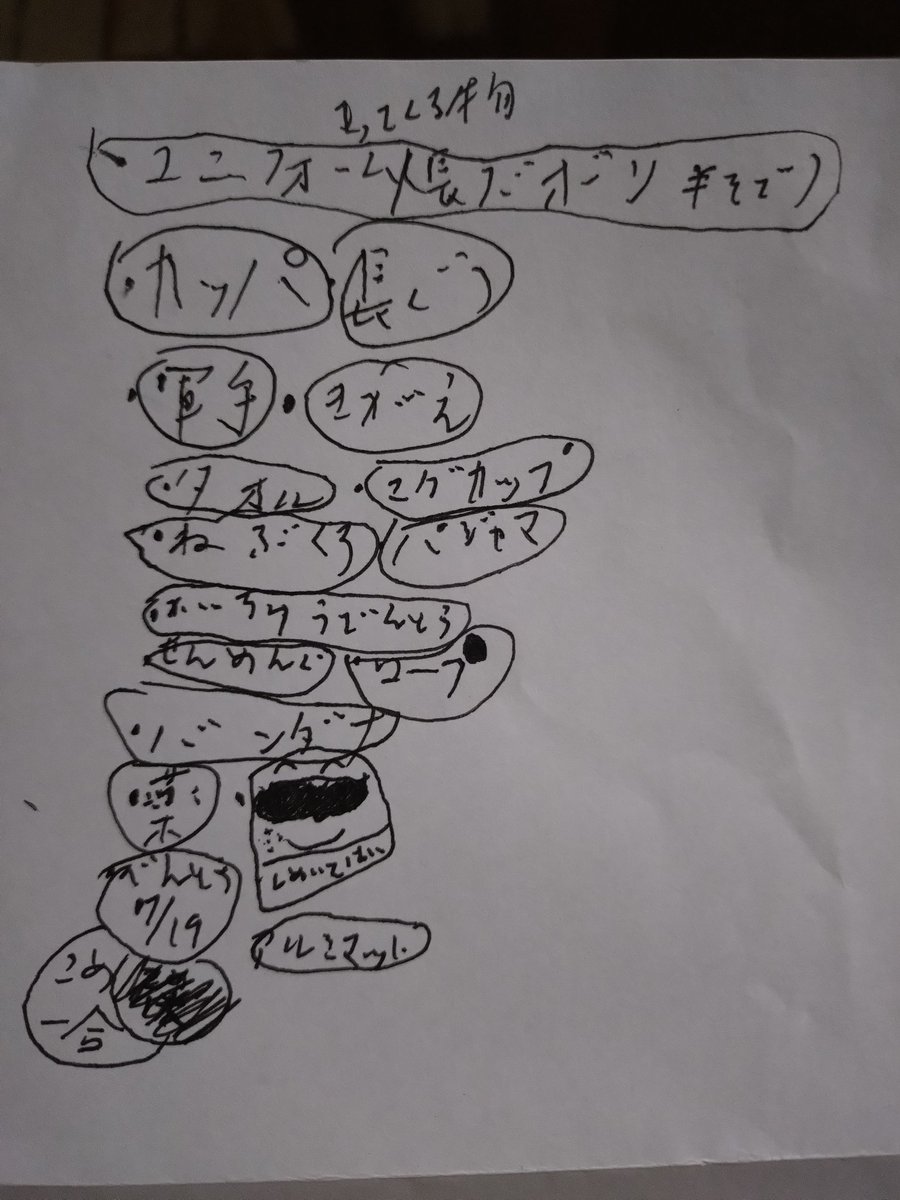 もってくる物
・ユニフォーム(長ズボン 半そで)
・カッパ ・長ぐつ
・軍手 ・きがえ
・タオル ・マグカップ
・ねぶくろ パジャマ
・かいちゅうでんとう
せんめんぐ ロープ
・バンダナ
・薬
べんとう
7/19
アルミマット
こめ
一合